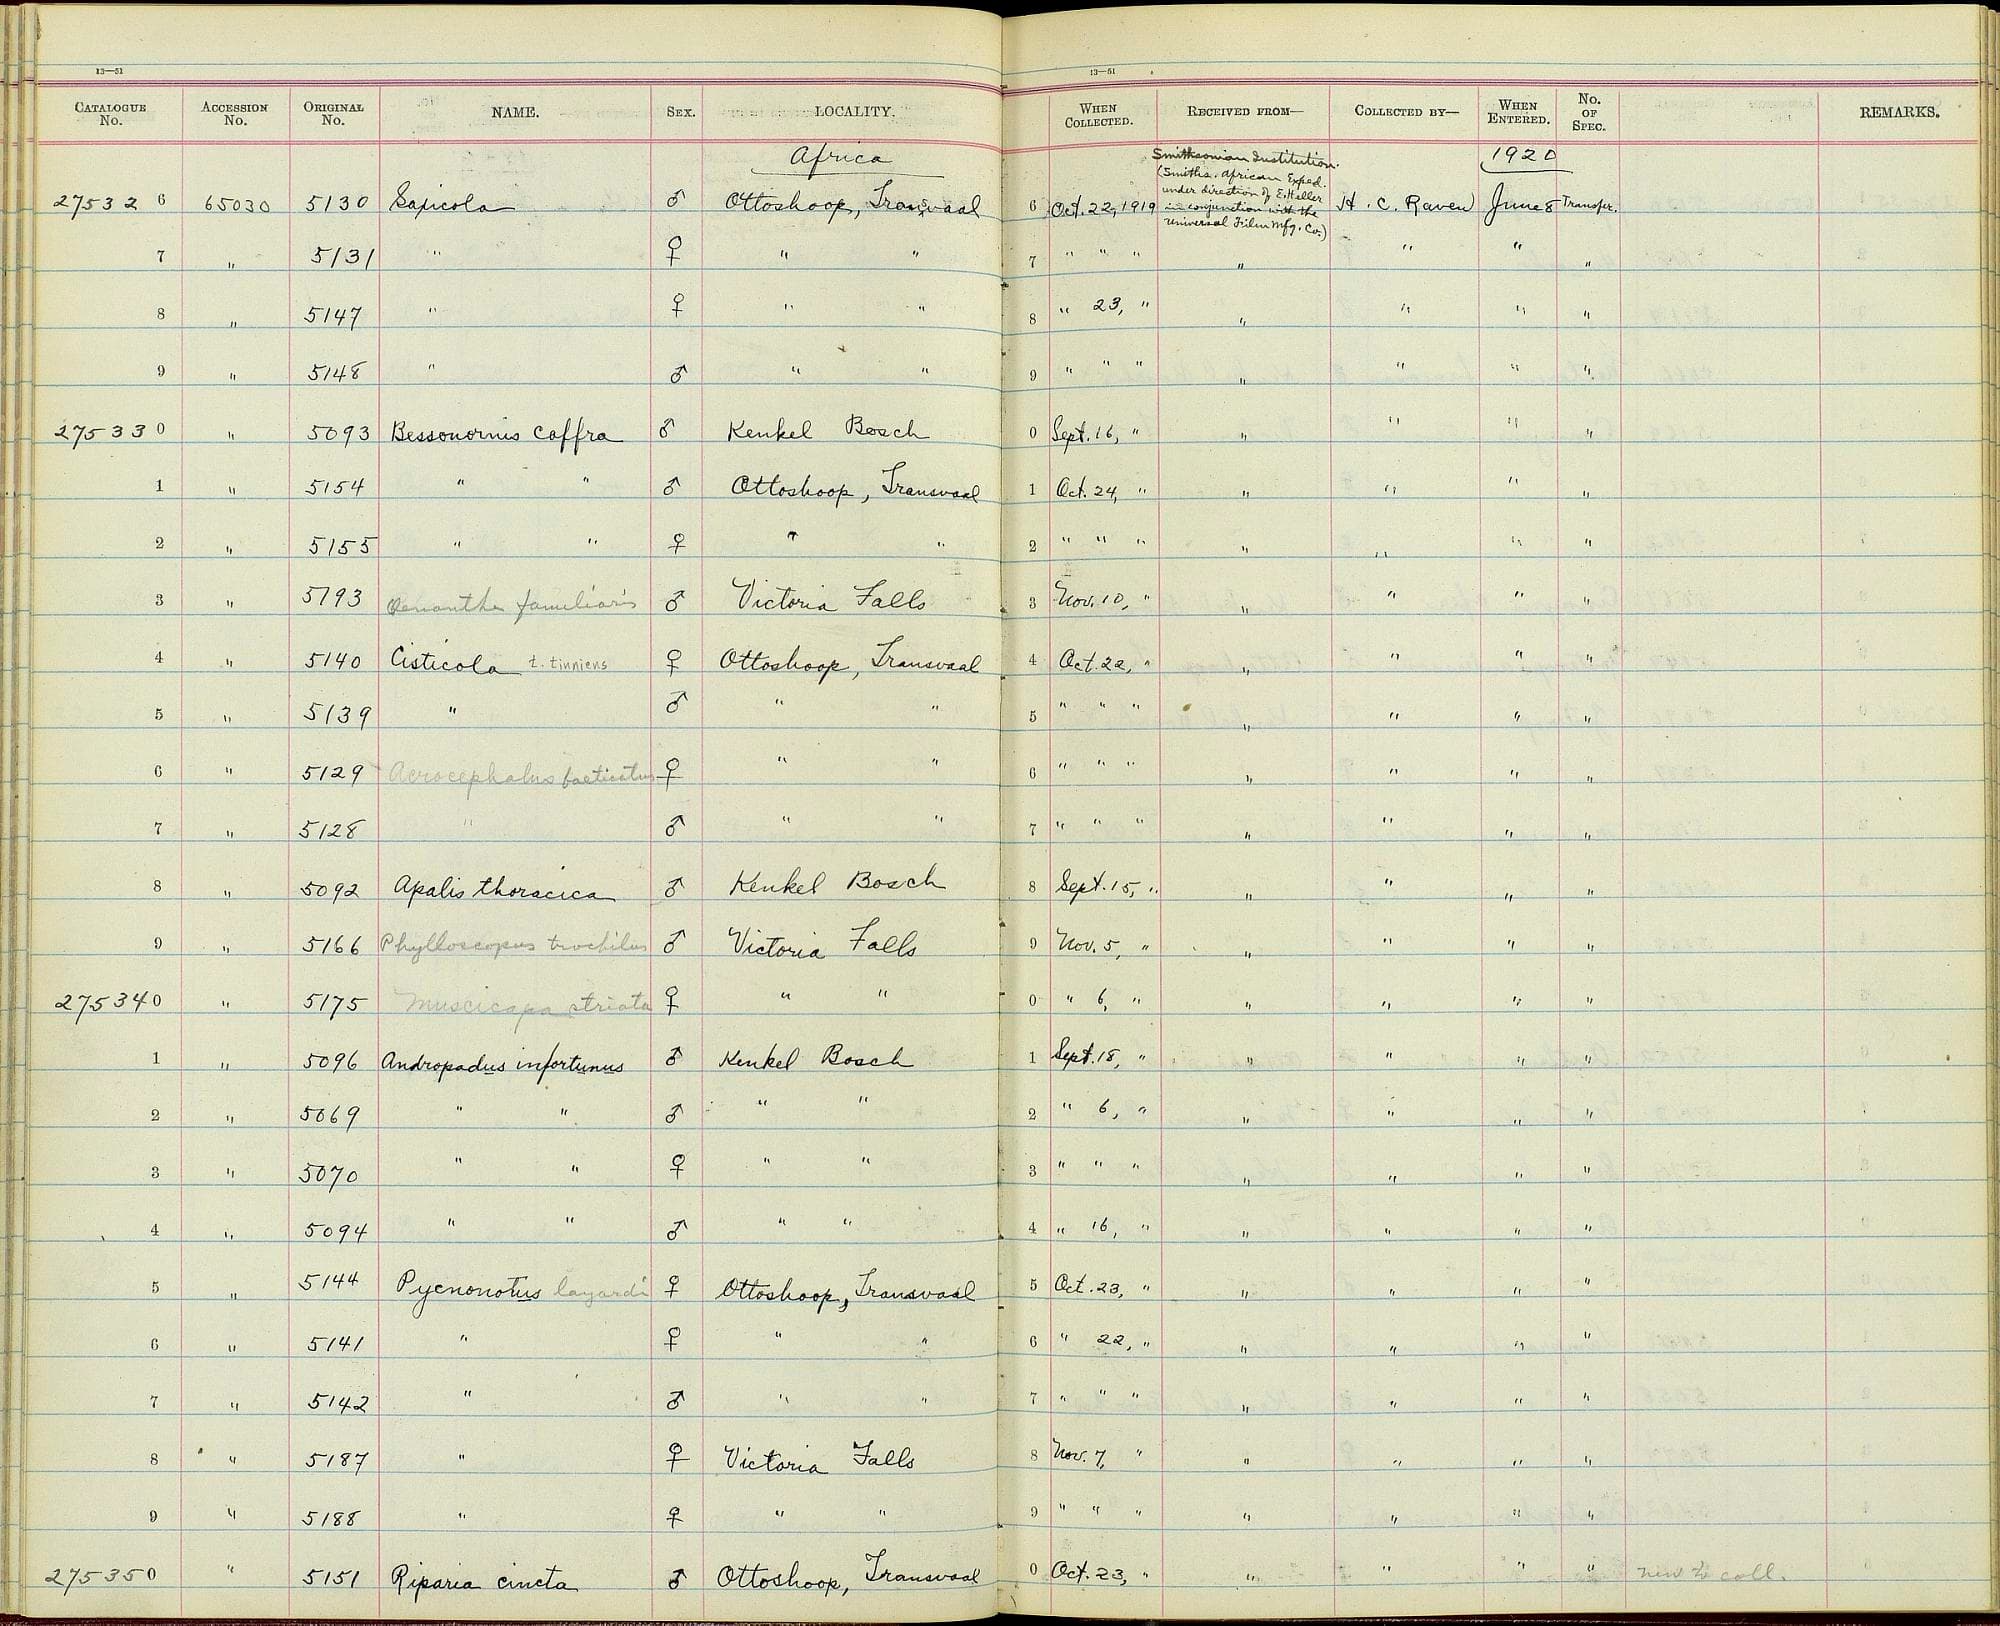 13—51
13—51
CATALOGUE No. ACCESSION No. ORIGINAL No. NAME. SEX. LOCALITY. WHEN COLLECTED. RECEIVED FROM— COLLECTED BY— WHEN ENTERED. No. OF SPEC. REMARKS.
Africa 1920
Smithsonian Institution.
(Smiths. African Exped.
under direction of E. Heller
in conjunction with the
universal Film Mfg. Co.)
27532 6 65030 5130 Saxicola ♂ Ottoshoop, Transvaal 6 Oct. 22, 1919 H. C. Raven June 8 Transfer.
7 " 5131 " ♀ " " 7 " " " " " " "
8 " 5147 " ♀ " " 8 " 23, " " " " "
9 " 5148 " ♂ " " 9 " " " " " " "
27533 0 " 5093 Bessonornis caffra ♂ Kenkel Bosch 0 Sept. 16, " " " " "
1 " 5154 " " ♂ Ottoshoop, Transvaal 1 Oct. 24, " " " " "
2 " 5155 " " ♀ " " 2 " " " " " " "
3 " 5193 Oenanthe familiaris ♂ Victoria Falls 3 Nov. 10, " " " " "
4 " 5140 Cisticola t. tinniens ♀ Ottoshoop, Transvaal 4 Oct. 22, " " " " "
5 " 5139 " ♂ " " 5 " " " " " " "
6 " 5129 Acrocephalus baeticatus ♀ " " 6 " " " " " " "
7 " 5128 " ♂ " " 7 " " " " " " "
8 " 5092 Apalis thoracica ♂ Kenkel Bosch 8 Sept. 15, " " " " "
9 " 5166 Phylloscopus trochilus ♂ Victoria Falls 9 Nov. 5, " " " " "
27534 0 " 5175 Muscicapa striata ♀ " " 0 " 6, " " " " "
1 " 5096 Andropadus infortunus ♂ Kenkel Bosch 1 Sept. 18, " " " " "
2 " 5069 " " ♂ " " 2 " 6, " " " " "
3 " 5070 " " ♀ " " 3 " " " " " " "
4 " 5094 " " ♂ " " 4 " 16, " " " " "
5 " 5144 Pycnonotus layardi ♀ Ottoshoop, Transvaal 5 Oct. 23, " " " " "
6 " 5141 " ♀ " " 6 " 22, " " " " "
7 " 5142 " ♂ " " 7 " " " " " " "
8 " 5187 " ♀ Victoria Falls 8 Nov. 7, " " " " "
9 " 5188 " ♀ " " 9 " " " " " " "
27535 0 " 5151 Riparia cincta ♂ Ottoshoop, Transvaal 0 Oct. 23, " " " " " new to coll.